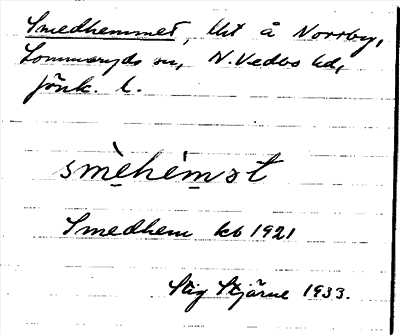 Smedhemmet, lht å Norrby,
Lommaryds sn, N. Vedbo hd,
Jönk. l.
smὲhém̲ət
Smedhem kb 1921
Stig Stjärne 1933.